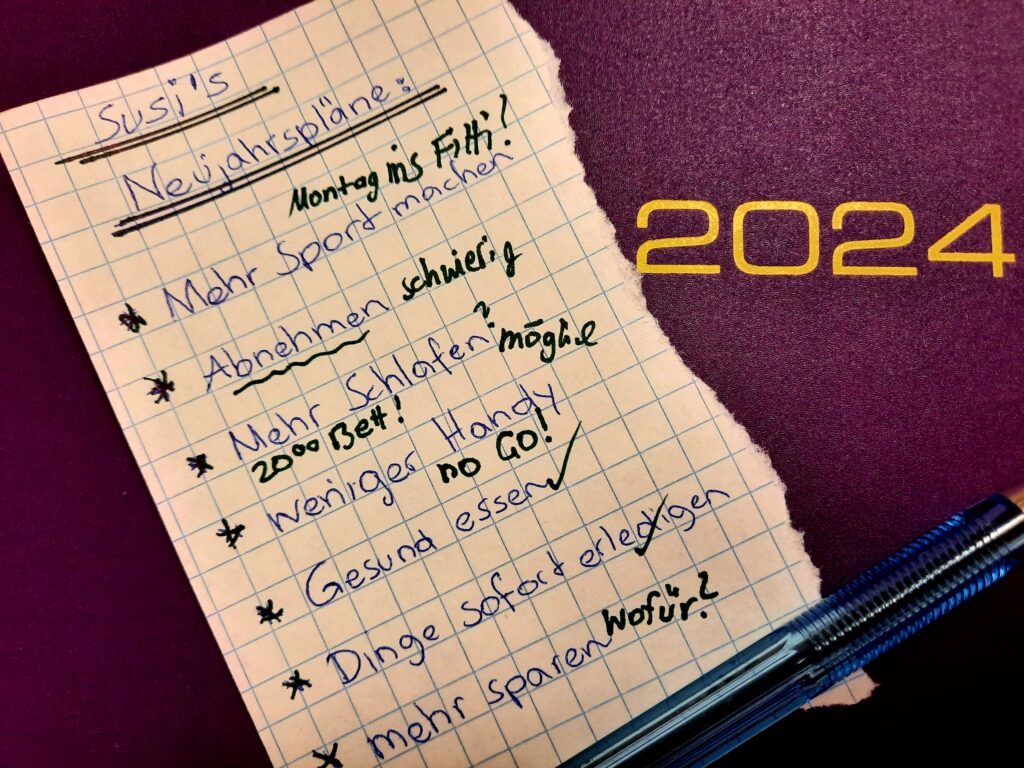 Susi's
Neujahrspläne:
Montag ins Fitti!
* Mehr Sport machen
* Abnehmen schwierig
* Mehr Schlafen? möglie
2000 Bett!
* weniger Handy
no GO!
* Gesund essen ✓
* Dinge sofort erledigen ✓
* mehr sparen wofür?
2024